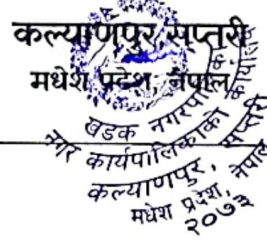 कल्याणपुर, सप्तरी
मधेश प्रदेश, नेपाल
खडक नगरपा
नगर कार्यपालिकाको
कल्याणपुर, सप्तरी
मधेश प्रदेश, नेपाल
२०७३